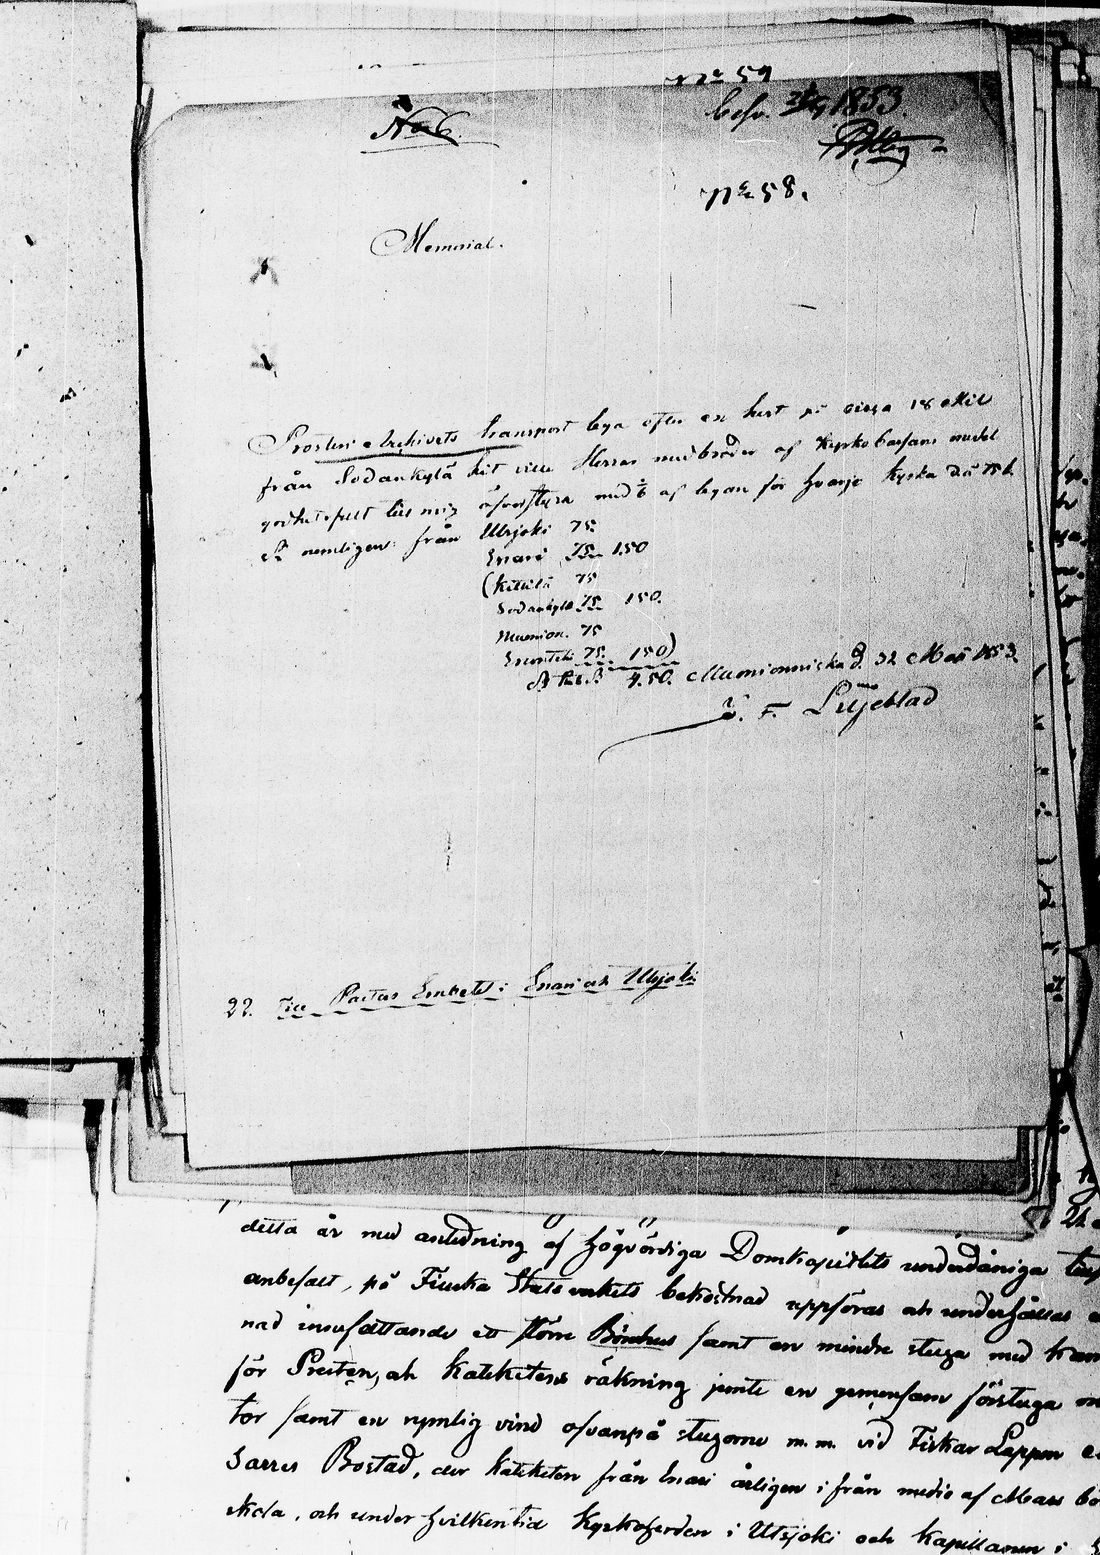 No 59
No 6.
besv. 1853.
No 58.
Memorial.
Prosteri Archivets transport lega efter en häst på cirça 18 Mil
från Sodankylä hit ville Herrar medbröder af Kyrko Cassans medel
godhetsfullt till mig öfverstyra med 1/6 af legan för hvarje Kyrka då 75 k.
nemligen från Utsjoki 75.
Enare 75. 1.50
(Kittilä 75
Sodankylä 75 150.
Muonion. 75
Enonteki 75. 150)
4.50. Muonionniska d. 32 Maii 1853.
J. F. Liljeblad
22. Till Pastors Embetet i Enari och Utsjoki
detta år med anledning af Högvördiga Domkapitlets underdåniga
anbefalt, på Finska Statsverkets bekostnad uppföras och underhållas
nad innefattande ett större Bönehus samt en mindre stuga med
för Presten, och Kateketens räkning jemte en gemensam förstuga
tor samt en rymlig vind ofvanpå stugorne m.m. vid Fiskar Lappen
Sarres Bostad, der Kateketen från Enari årligen ifrån medio af Mars
skola, och under hvilken tid Kyrkoherden i Utsjoki och Kapellanen i